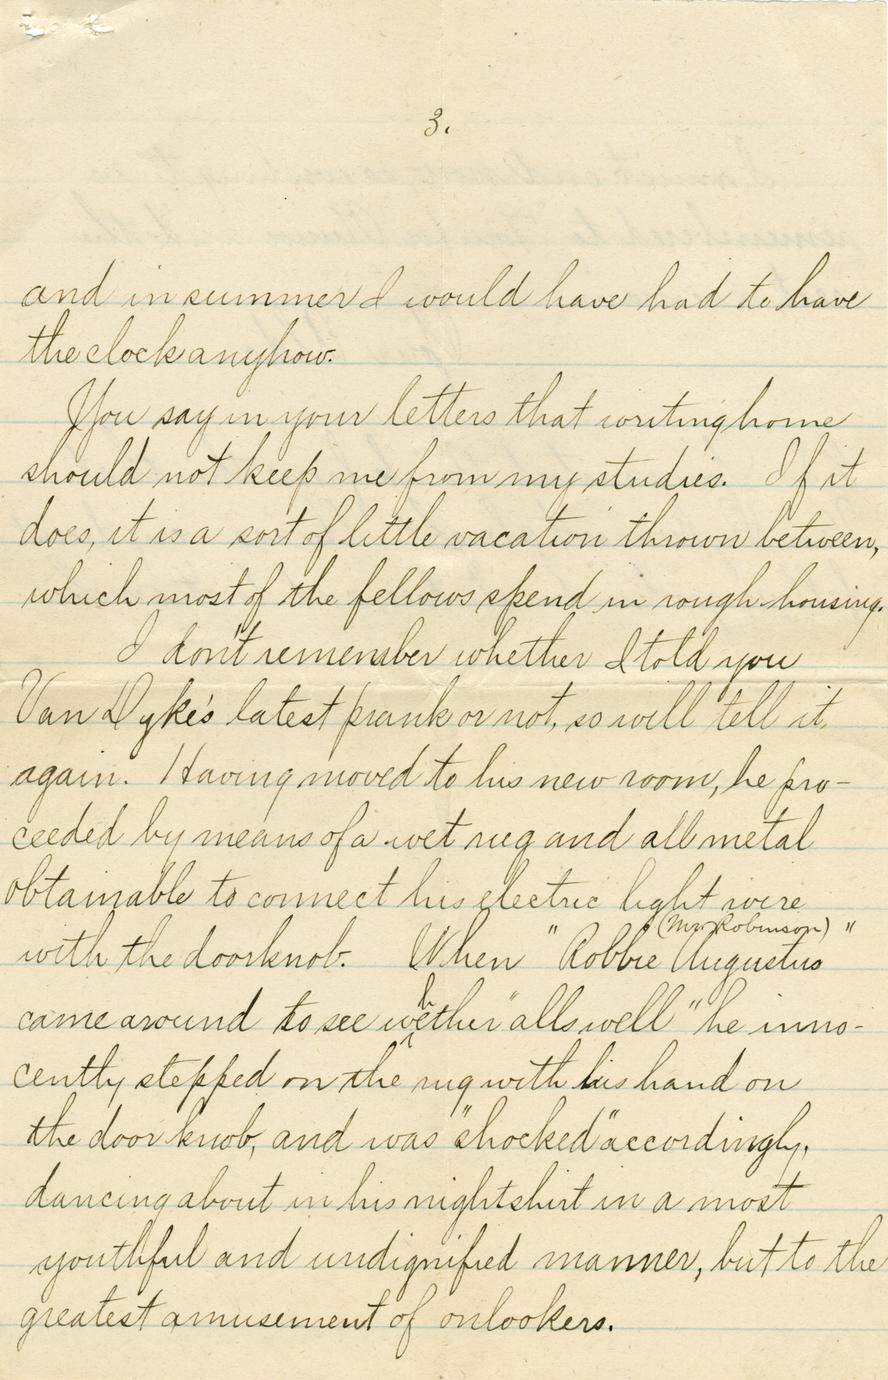 3.
and in summer I would have had to have
the clock anyhow.
You say in your letters that writing home
should not keep me from my studies. If it
does, it is a sort of little vacation thrown between,
which most of the fellows spend in rough-housing.
I don't remember whether I told you
Van Dyke's latest prank or not, so will tell it
again. Having moved to his new room, he pro-
ceeded by means of a wet rug and all metal
obtainable to connect his electric light wire
with the doorknob. When "Robbie Augustus (Mr. Robinson)"
came around to see whether "alls well" he inno-
cently stepped on the rug with his hand on
the door knob, and was "shocked" accordingly,
dancing about in his nightshirt in a most
youthful and undignified manner, but to the
greatest amusement of onlookers.